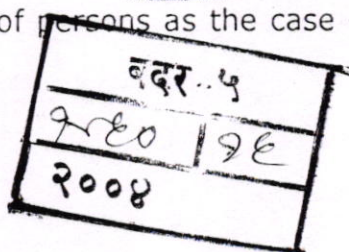 of persons as the case
बदर..५
१६
२००४